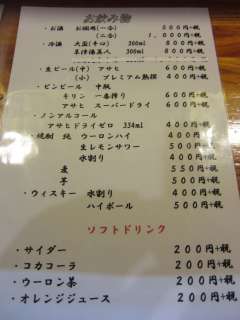 お飲み物
・お酒 お燗処(一合) 500円+税
(二合) 1,000円+税
・冷酒 大盃(辛口) 300ml 500円+税
300ml 500円+税
・生ビール(中) アサヒ 600円+税
(小) プレミアム熟撰 400円+税
・ビンビール 中瓶
キリン 一番搾り 600円+税
アサヒ スーパードライ 600円+税
・ノンアルコール
アサヒドライゼロ 334ml 400円+税
・焼酎 純 ウーロンハイ 400円+税
生レモンサワー 500円+税
水割り 400円+税
麦 550円+税
芋 500円+税
・ウィスキー 水割り 400円+税
ハイボール 500円+税
ソフトドリンク
・サイダー 200円+税
・コカコーラ 200円+税
・ウーロン茶 200円+税
・オレンジジュース 200円+税